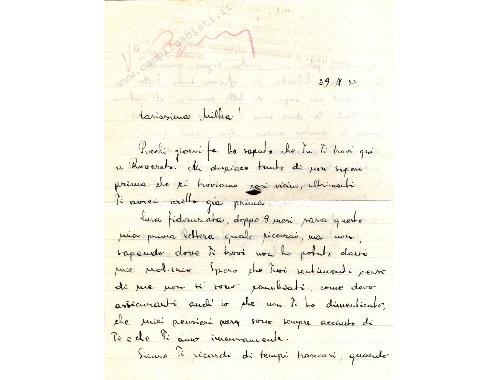 www.campifascisti.it
Vo
29
Carissima Milka!
Pochi giorni fa ho saputo che Tu Ti trovi qui
a Rovereto. Mi dispiace tanto di non sapere
prima che ci troviamo così vicini, altrimenti
Ti avrei scritto già prima.
Cara fidanzata, doppo 9 mesi sara questa
mia prima lettera quale riceverai, ma non
sapendo dove Ti trovi non ho potuto darti
mie notizie. Spero che Tuoi sentimenti verso
di me non si sono cambiati, come devo
assicurarti anch' io che non Ti ho dimenticato,
che miei pensieri sono sempre accanto di
Te e che Ti amo immensamente.
Sicuro Ti ricordi di tempi trascorsi, quando